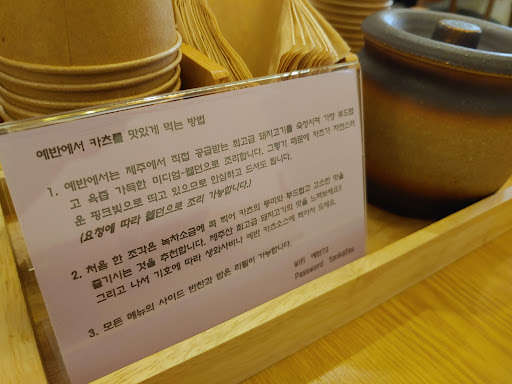 예반에서 카츠를 맛있게 먹는 방법
1. 예반에서는 제주에서 직접 공급받는 최고급 돼지고기를 숙성시켜 가장 부드럽
고 육즙 가득한 미디엄-웰던으로 조리합니다. 그렇기 때문에 카츠가 자연스러
운 핑크빛으로 띄고 있으므로 안심하고 드셔도 됩니다.
(요청에 따라 웰던으로 조리 가능합니다.)
2. 처음 한 조각은 녹차소금에 콕 찍어 카츠의 풍미와 부드럽고 고소한 맛을
즐기시는 것을 추천합니다. 제주산 최고급 돼지고기의 맛을 느껴보세요!
그리고 나서 기호에 따라 생와사비나 예반 카츠소스에 찍어서 드세요.
3. 모든 메뉴의 사이드 반찬과 밥은 리필이 가능합니다.
Wifi 예반72
Password tonkatsu